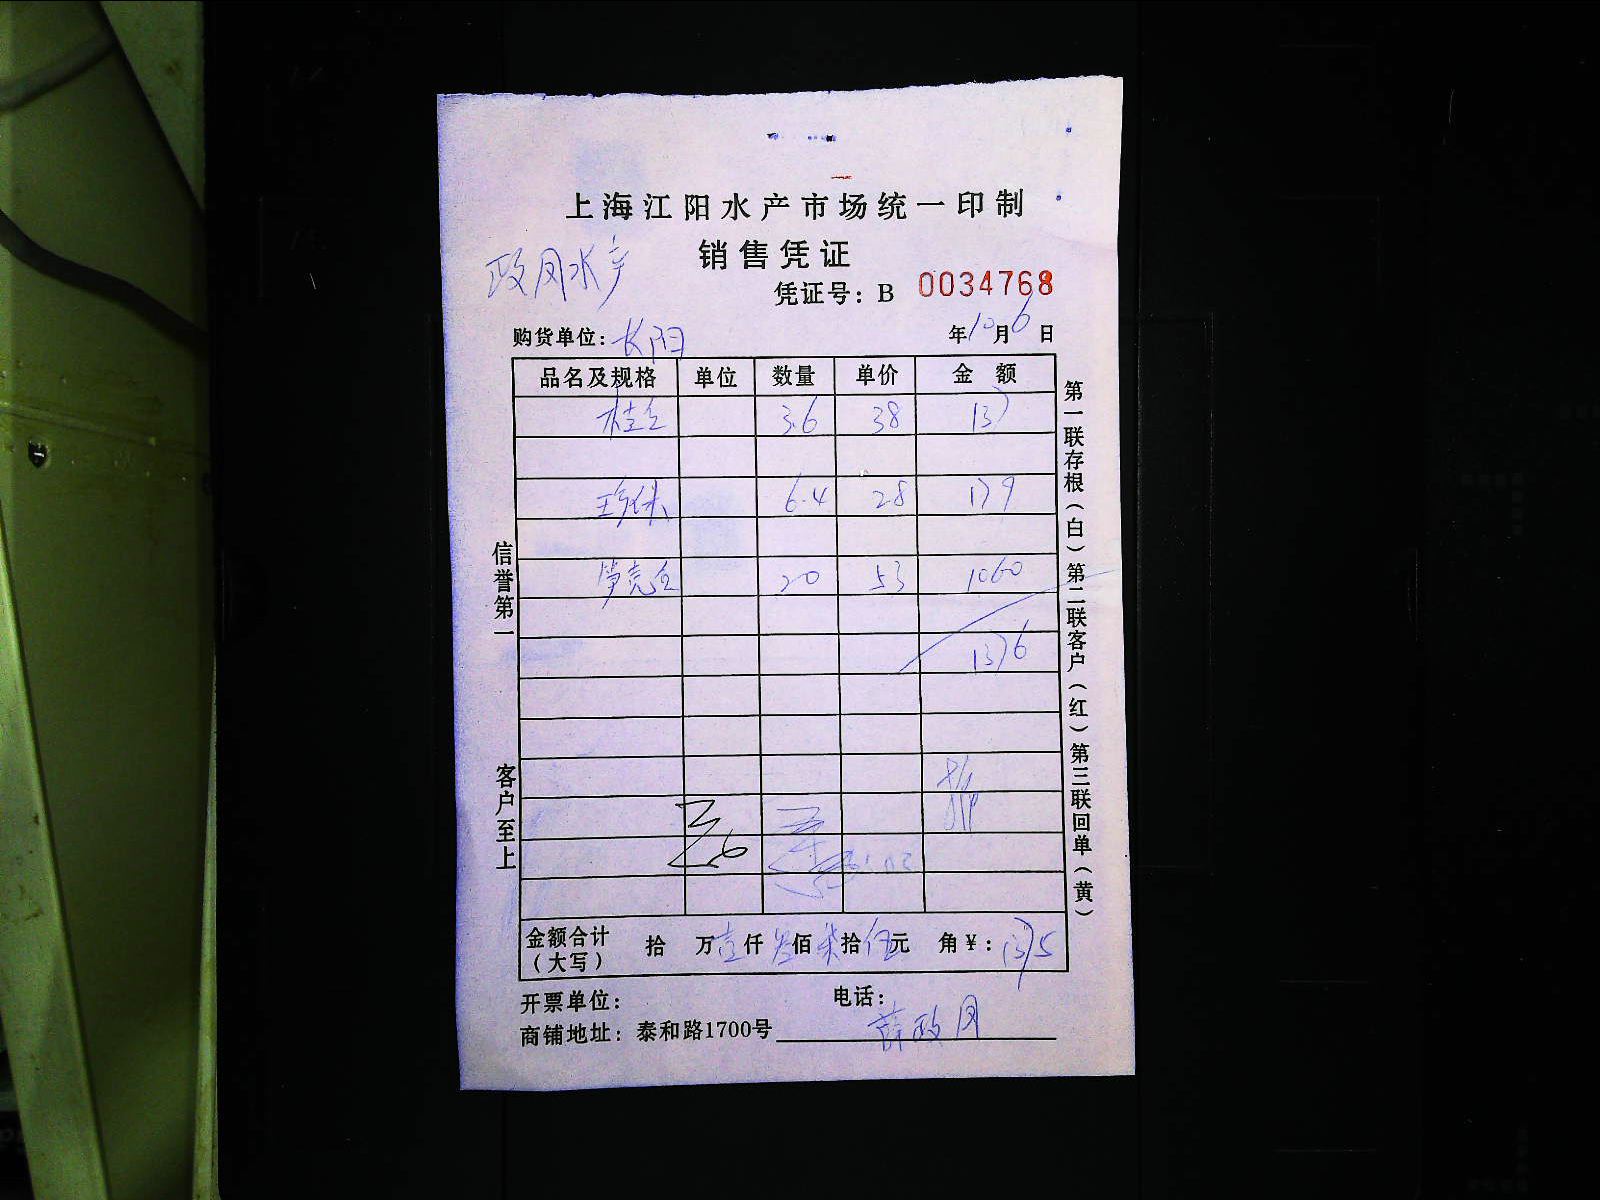 上海江阳水产市场统一印制
销售凭证
政凤水产
凭证号：B 0034768
购货单位：长阳 年10月6日
品名及规格 单位 数量 单价 金额
桂鱼 3.6 38 137
珍珠 6.4 28 179
笋壳鱼 20 53 1060
1376
金额合计（大写） 拾 万壹仟叁佰柒拾伍元 角￥：1375
开票单位： 电话：
商铺地址：泰和路1700号 薛政凤
信誉第一
客户至上
第一联存根（白）第二联客户（红）第三联回单（黄）